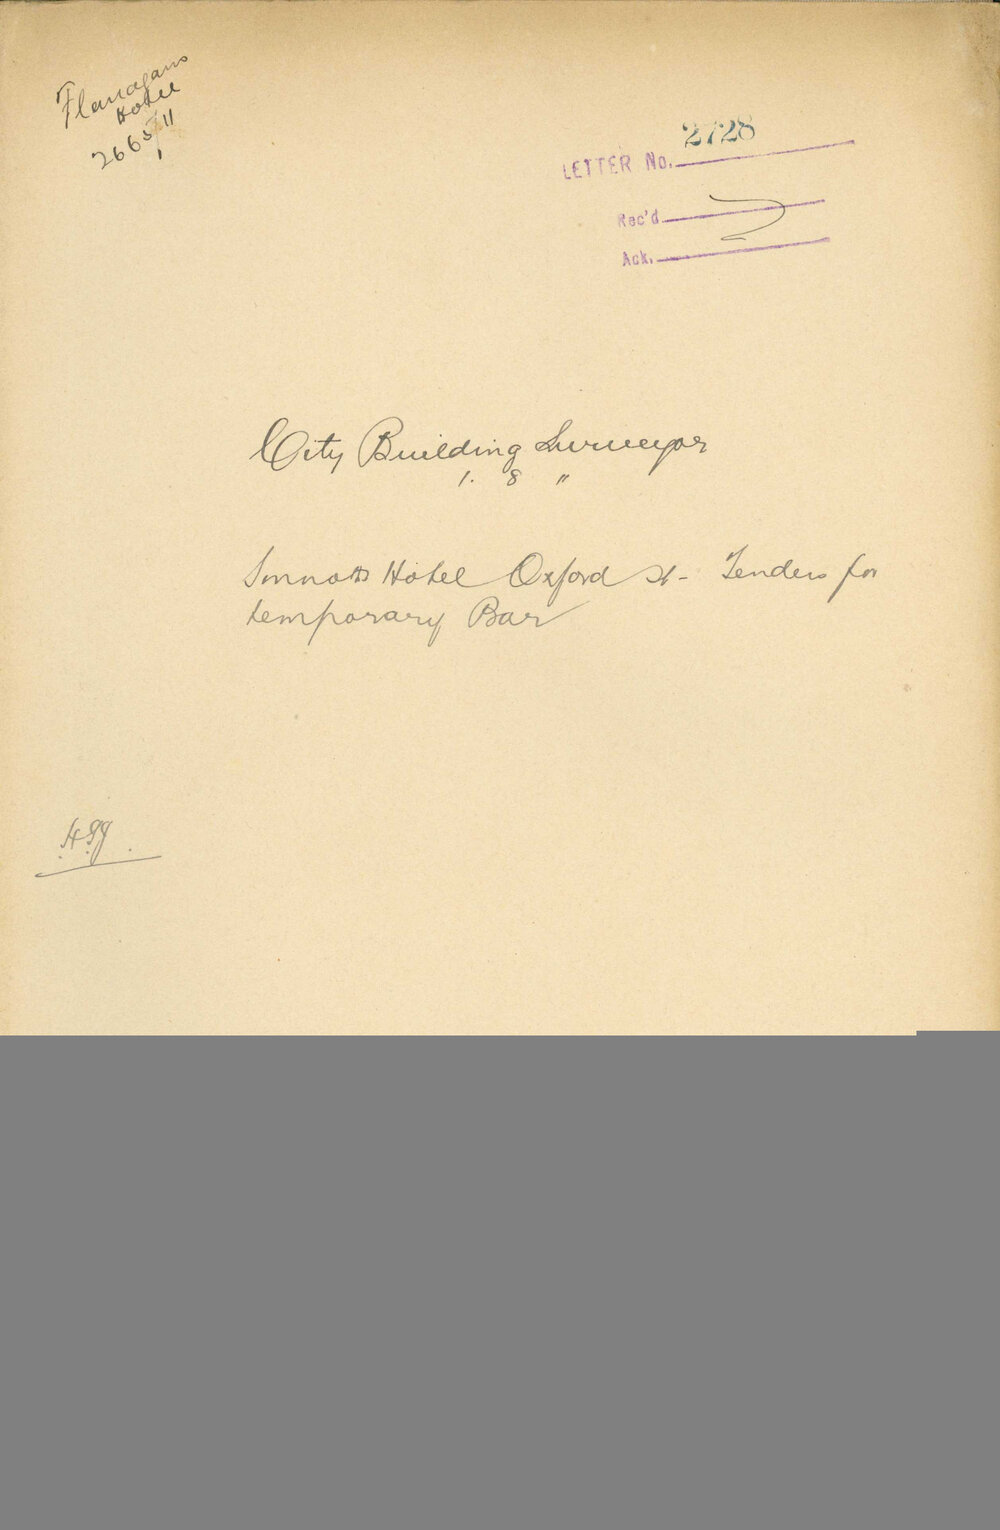 Flanagans
Hotel
2665/11
2728
LETTER No.
Rec'd
Ack.
City Building Surveyor
1. 8 "
Hotel Oxford St - Tenders for
temporary Bar